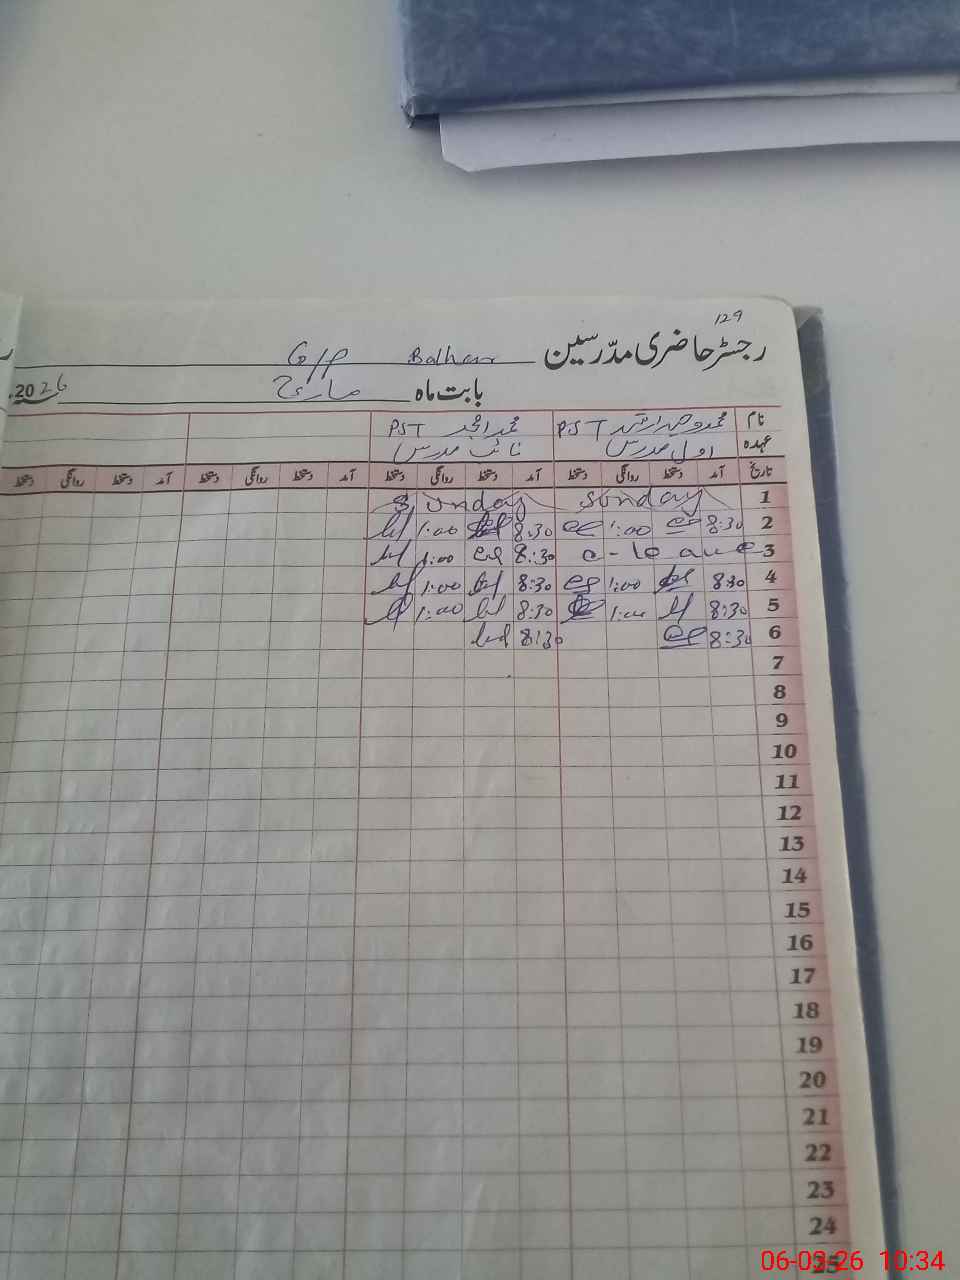 129
رجسٹر حاضری مدرسین G/P Balhar
بابت ماہ مارچ 2026
نام محمد وحید ارشد PST محمد امجد PST
عہدہ اول مدرس نائب مدرس
تاریخ آمد دستخط روانگی دستخط آمد دستخط روانگی دستخط آمد دستخط روانگی دستخط آمد دستخط روانگی دستخط
1 Sunday Sunday
2 8:30 1:00 8:30 1:00
3 c-leave 8:30 1:00
4 8:30 1:00 8:30 1:00
5 8:30 1:00 8:30 1:00
6 8:30 8:30
7
8
9
10
11
12
13
14
15
16
17
18
19
20
21
22
23
24
25
06-03-26 10:34